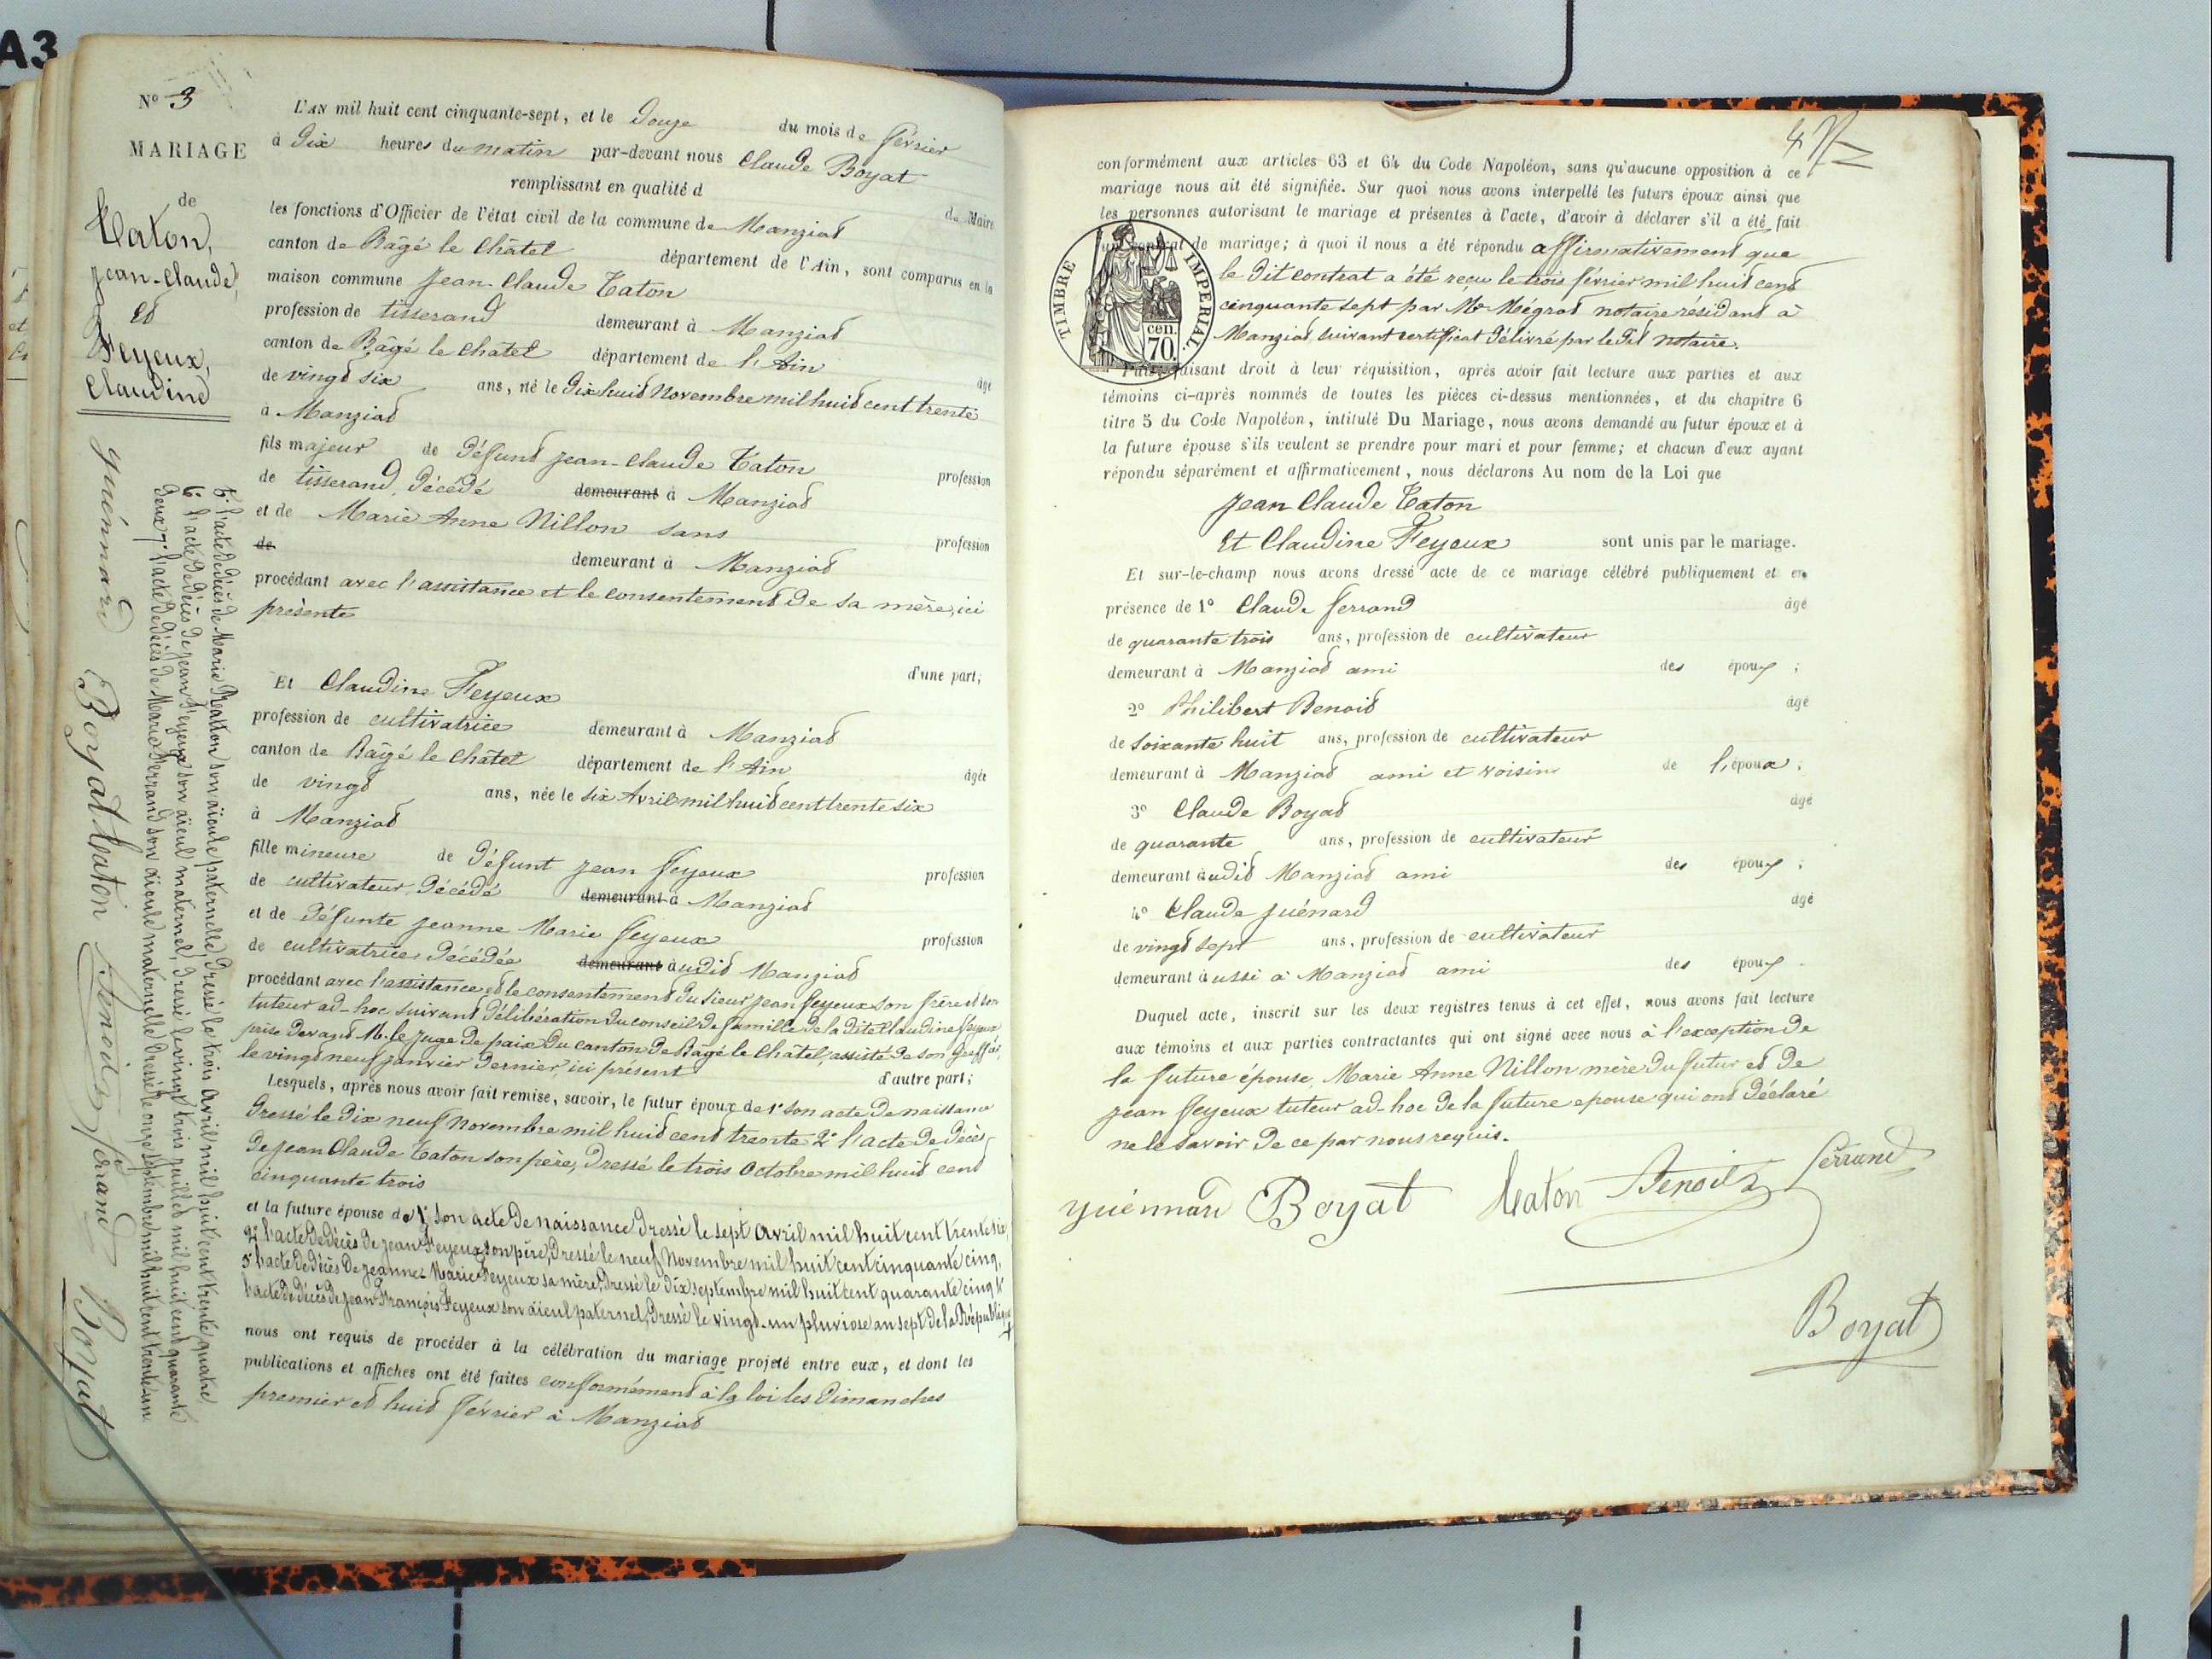 A3
N° 3
MARIAGE
de
Caton,
Jean-Claude,
et
Feyeux,
Claudine
L'AN mil huit cent cinquante-sept, et le Douze du mois de février
à Dix heures du matin par-devant nous Claude Boyat
remplissant en qualité d de Maire
les fonctions d'Officier de l'état civil de la commune de Manziat
canton de Bâgé le Châtel département de l'Ain, sont comparus en la
maison commune Jean-Claude Caton
profession de tisserand demeurant à Manziat
canton de Bâgé le Châtel département de l'Ain âgé
de vingt six ans, né le Dix huit Novembre mil huit cent trente
à Manziat
fils majeur de Défunt Jean-Claude Caton profession
de tisserand, Décédé demeurant à Manziat
et de Marie Anne Nillon sans profession
de demeurant à Manziat
procédant avec l'assistance et le consentement de sa mère, ici
présente
d'une part;
Et Claudine Feyeux
profession de cultivatrice demeurant à Manziat
canton de Bâgé le Châtel département de l'Ain âgée
de vingt ans, née le six Avril mil huit cent trente six
à Manziat
fille mineure de Défunt Jean Feyeux profession
de cultivateur, Décédé demeurant à Manziat
et de Défunte Jeanne Marie Feyeux profession
de cultivatrice, Décédée demeurant àudit Manziat
procédant avec l'assistance et le consentement du sieur Jean Feyeux son frère et son
tuteur ad-hoc suivant Délibération du conseil de famille de la dite Claudine Feyeux
prise devant M. le Juge de paix du canton de Bâgé le Châtel, assisté de son Greffier,
le vingt neuf janvier dernier, ici présent d'autre part;
Lesquels, après nous avoir fait remise, savoir, le futur époux de 1° son acte de naissance
Dressé le Dix neuf Novembre mil huit cent trente 2° l'acte de décès
de Jean Claude Caton son père, Dressé le trois Octobre mil huit cent
cinquante trois
et la future épouse de 1° son acte de naissance dressé le sept avril mil huit cent trente six,
2° l'acte de décès de Jean Feyeux son père, Dressé le neuf Novembre mil huit cent cinquante cinq,
3° l'acte de décès de Jeanne Marie Feyeux sa mère, Dressé le Dix septembre mil huit cent quarante cinq 4°
l'acte de décès de Jean François Feyeux son aïeul paternel, Dressé le vingt-un pluviose an sept de la République
nous ont requis de procéder à la célébration du mariage projeté entre eux, et dont les
publications et affiches ont été faites conformément à la loi les Dimanches
premier et huit février à Manziat
5° l'acte de décès de Marie Caton son aïeule paternelle, Dressé le trois avril mil huit cent trente quatre,
6° l'acte de décès de Jean Feyeux son aïeul maternel, Dressé le vingt trois juillet mil huit cent quarante
deux 7° l'acte de décès de Marie Ferrand son aïeule maternelle Dressé le onze septembre mil huit cent trente-un
guénnard Boyat Caton Benoit ferrand Boyat
4
conformément aux articles 63 et 64 du Code Napoléon, sans qu'aucune opposition à ce
mariage nous ait été signifiée. Sur quoi nous avons interpellé les futurs époux ainsi que
les personnes autorisant le mariage et présentes à l'acte, d'avoir à déclarer s'il a été fait
un contrat de mariage; à quoi il nous a été répondu affirmativement que
le Dit contrat a été reçu le trois février mil huit cent
cinquante sept par Me Mégrat notaire résidant à
Manziat, suivant certificat Délivré par le Dit notaire.
TIMBRE IMPERIAL.
cen.
70.
Puis, faisant droit à leur réquisition, après avoir fait lecture aux parties et aux
témoins ci-après nommés de toutes les pièces ci-dessus mentionnées, et du chapitre 6
titre 5 du Code Napoléon, intitulé Du Mariage, nous avons demandé au futur époux et à
la future épouse s'ils veulent se prendre pour mari et pour femme; et chacun d'eux ayant
répondu séparément et affirmativement, nous déclarons Au nom de la Loi que
Jean Claude Caton
Et Claudine Feyeux sont unis par le mariage.
Et sur-le-champ nous avons dressé acte de ce mariage célébré publiquement et en
présence de 1° Claude Ferrand âgé
de quarante trois ans, profession de cultivateur
demeurant à Manziat ami des époux ;
2° Philibert Benoit âgé
de soixante huit ans, profession de cultivateur
demeurant à Manziat ami et voisin de l'époux ;
3° Claude Boyat âgé
de quarante ans, profession de cultivateur
demeurant àudit Manziat ami des époux ;
4° Claude Guénard âgé
de vingt sept ans, profession de cultivateur
demeurant àussi à Manziat ami des époux .
Duquel acte, inscrit sur les deux registres tenus à cet effet, nous avons fait lecture
aux témoins et aux parties contractantes qui ont signé avec nous à l'exception de
la future épouse, Marie Anne Nillon mère du futur et de
Jean Feyeux tuteur ad-hoc de la future épouse qui ont déclaré
ne le savoir de ce par nous requis.
guénnard Boyat Caton Benoit ferrand
Boyat